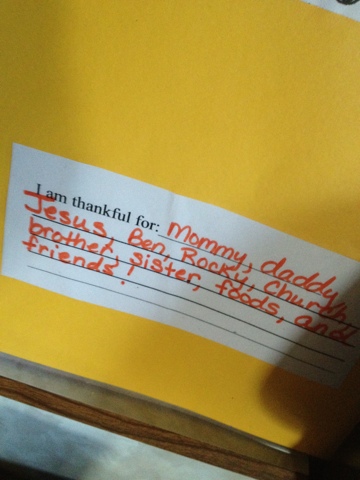 I am thankful for: Mommy, daddy,
Jesus, Ben, Rocky, Church,
brother, sister, foods, and
friends!